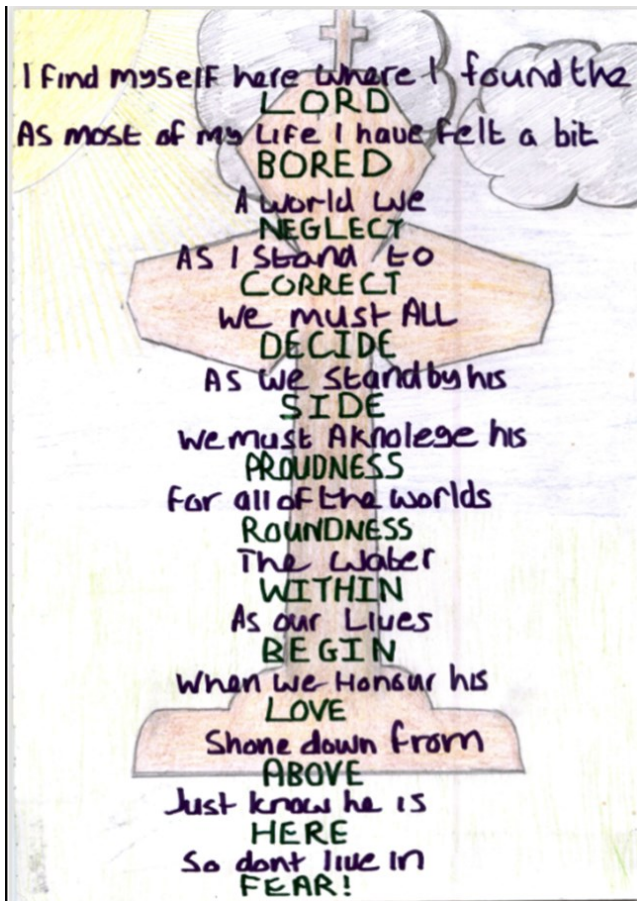 I find myself here where I found the
LORD
As most of my Life I have felt a bit
BORED
A world we
NEGLECT
AS I Stand to
CORRECT
We must ALL
DECIDE
As we Stand by his
SIDE
We must Aknolege his
PROUDNESS
For all of the worlds
ROUNDNESS
The Water
WITHIN
As our Lives
BEGIN
When we Honour his
LOVE
Shone down from
ABOVE
Just know he is
HERE
So dont live in
FEAR!